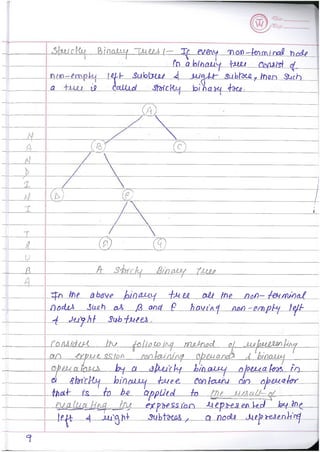 Strictly Binary Trees :- If every non-terminal node
in a binary tree consist of
non-empty left subtree & right subtree, then such
a tree is called strictly binary tree.
A
B
C
D
F
G
A Strictly Binary Tree
In the above binary tree all the non-terminal
nodes such as B and F having non-empty left
& right subtrees.
Consider the following method of representing
an expression containing operands & binary
operators by a strictly binary operators in
a strictly binary tree contains an operator
that is to be applied to the result of
evaluating the expression represented by the
left & right subtrees, a node representing
9